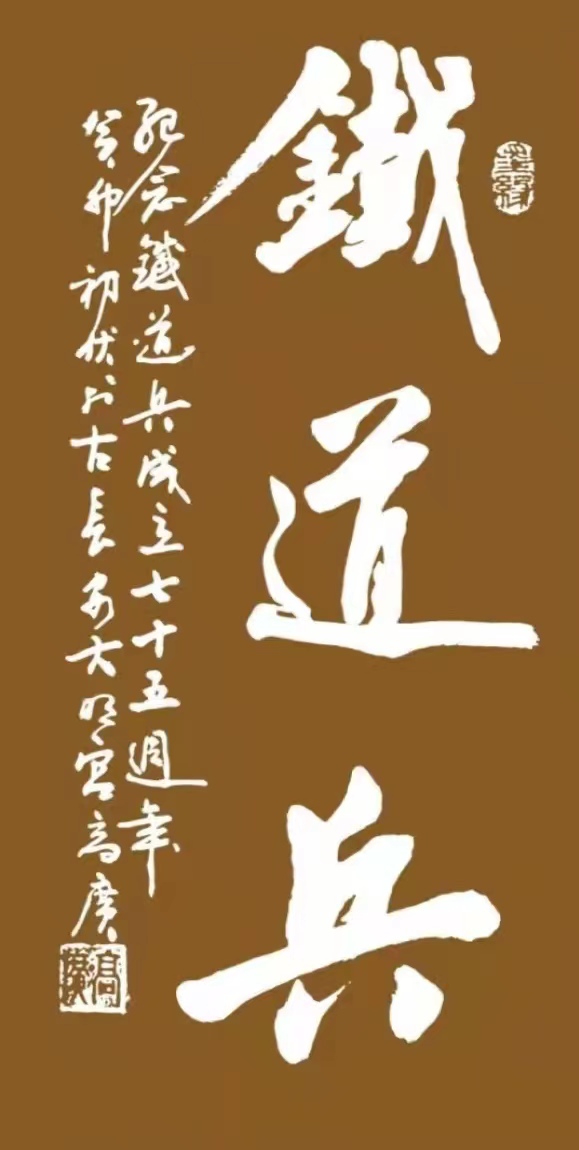 鐵道兵
紀念鐵道兵成立七十五週年
癸卯初伏於古長安大明宮高廣
高廣